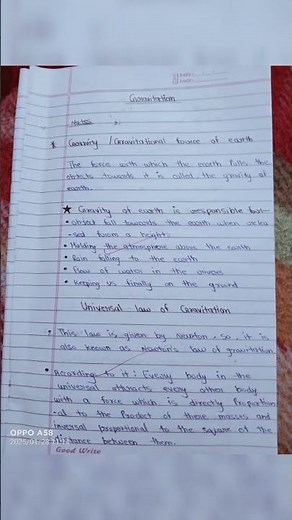 Gravitation
Notes :-
1. Gravity / Gravitational force of earth
The force with which the earth pulls the
objects towards it is called the gravity of
earth.
★ Gravity of earth is responsible for
• object fall towards the earth when relea
-sed from a height.
• Holding the atmosphere above the earth
• Rain falling to the earth
• flow of water in the rivers
• Keeping us firmly on the ground
Universal law of Gravitation
• This law is given by Newton. So, it is
also known as Newton's law of gravitation.
• According to it : Every body in the
universal attracts every other body
with a force which is directly Proportion
-al to the Product of there masses and
inversal proportional to the square of the
distance between them.
OPPO A58
Good Write